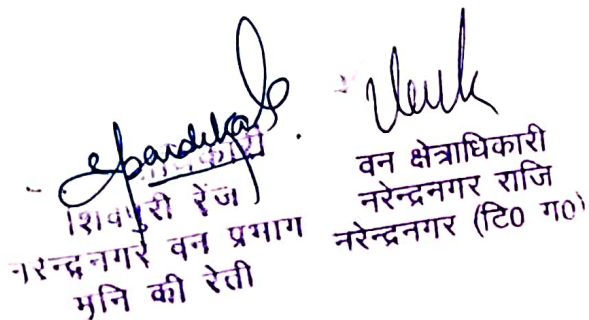 शिवपुरी रेंज
नरेन्द्रनगर वन प्रभाग
मुनि की रेती
वन क्षेत्राधिकारी
नरेन्द्रनगर राजि
नरेन्द्रनगर (टि0 ग0)